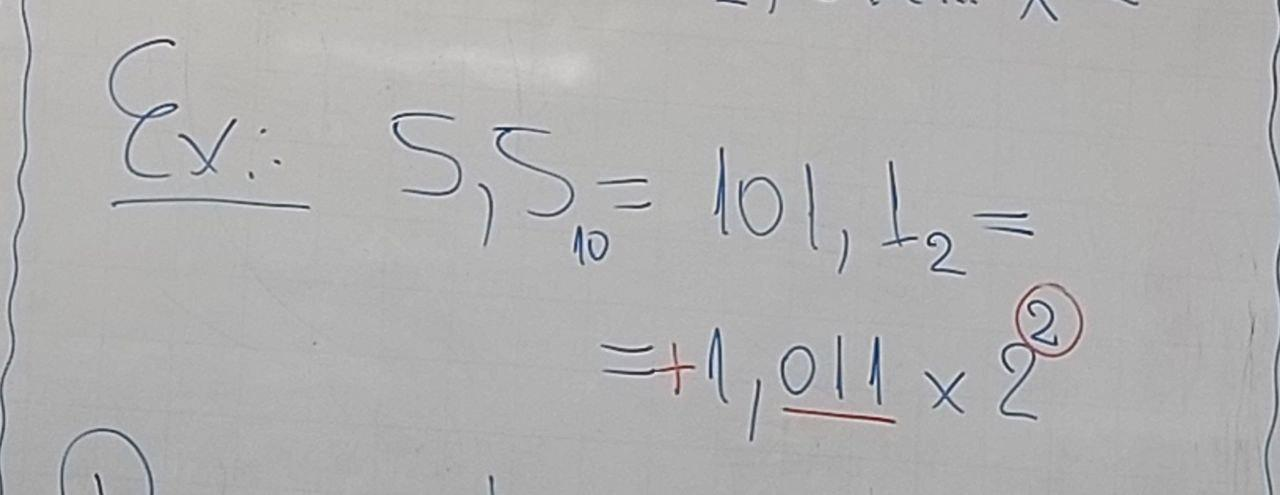 Ex.: 5,5₁₀ = 101,1₂ =
= +1,011 × 2²